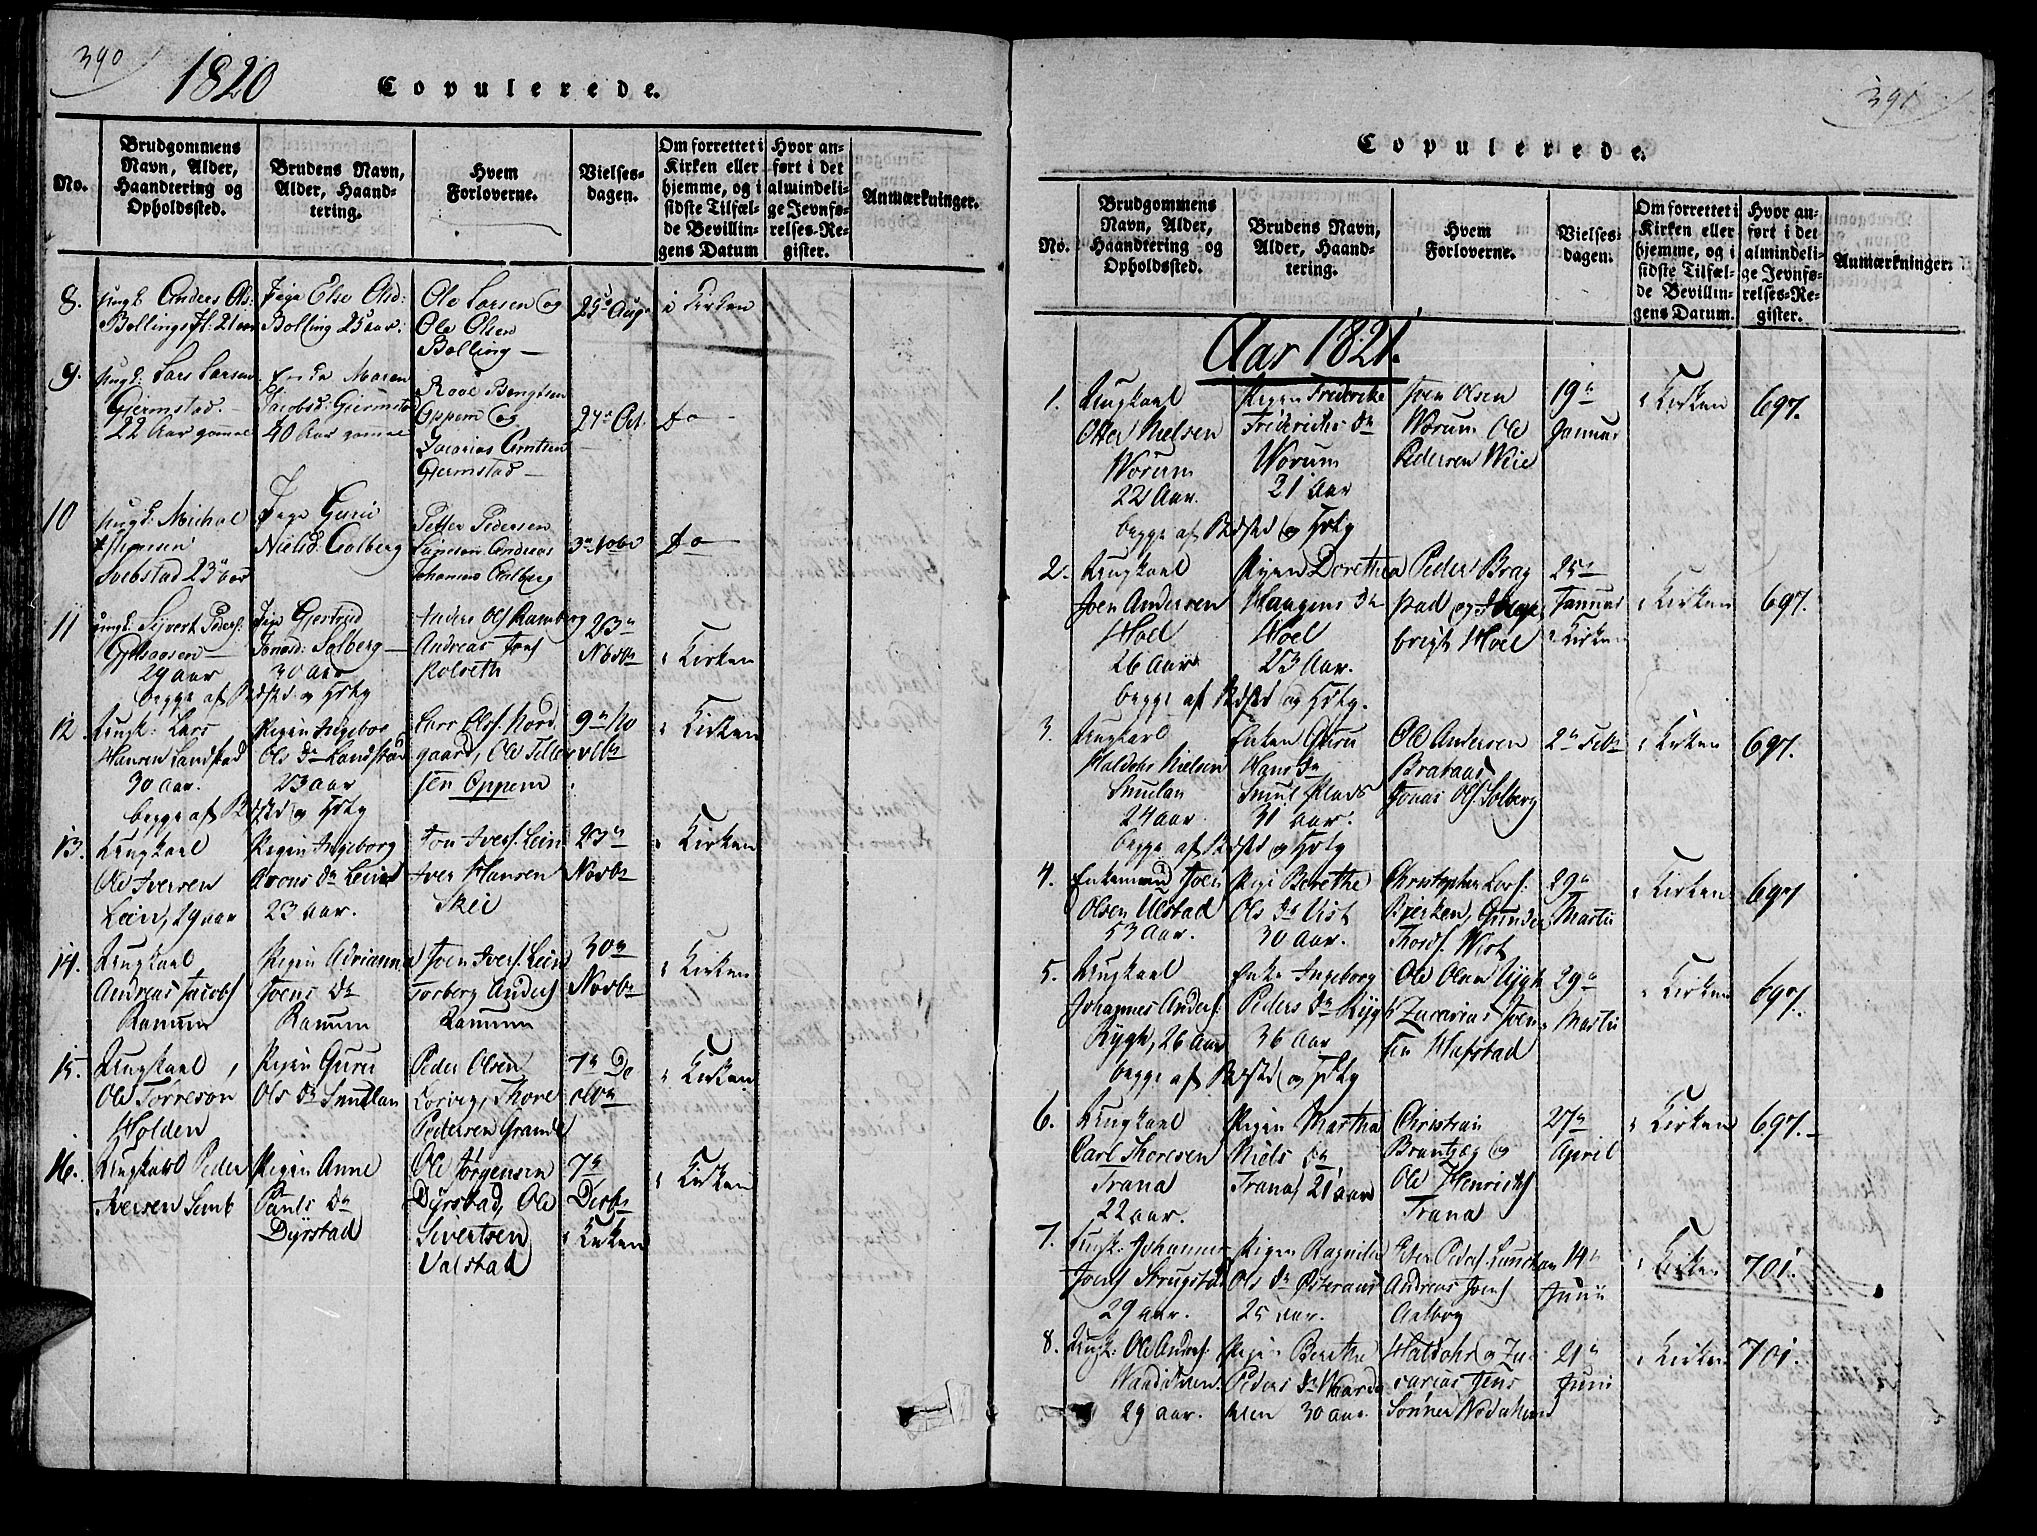 390
1820
Copulerede.
No.
Brudgommens
Navn, Alder,
Haandtering og
Opholdssted.
Brudens Navn,
Alder, Haand-
tering.
Hvem
Forloverne.
Vielses-
dagen.
Om forrettet i
Kirken eller
hjemme, og i
sidste Tilfæl-
de Bevillin-
gens Datum
Hvor an-
ført i det
almindeli-
ge Jevnfø-
relses-Re-
gister.
Anmærkninger.
8.
Anders Ols:
Bollings 21
Else Olsd:
Bolling 25 aar:
Ole Larsen og
Ole Olsen
Bolling
25 Aug
i Kirken
9.
Lars Larsen
Giermstad.
22 Aar gamel
Maren
Jacobsd: Giermstad
40 Aar gamel
Roal Bengtsen
Oppem og
Zacarias Arntsen
Giermstad
24 Oct
do
10
Michal
Svebstad 23 aar
Guru
Nielsd: Aalberg
Petter Pedersen
Andreas
Johannes Aalberg
3 Nobr
do
11
Sivert Peders:
29 aar
Gjertrud
Jonasd: Solberg
30 aar
Anders Ols Ramberg
Andreas Jons
Rolseth
23
Novbr
i Kirken
begge af Prdstd og Hskg
12.
Ungk: Lars
Hansen Landstad
30 aar.
Pigen Ingebor
Ols Dr Landstad
23 aar
Lars Ols. Nord
gaard, Ole Tiller
sen Oppem
9 No
vbr
i Kirken
begge af Prdstd og Hskg
13.
Ungkaal
Ole Iversen
Lein, 29 aar
Pigen Ingeborg
Arons Dr Lein
23 aar.
Jon Ivers. Lein
Iver Hansen
Skei
23
Novbr
i Kirken
14.
Ungkaal
Andreas Jacobs
Ramum
Pigen Adrianna
Joens Dr
Ramum
Joen Ivers. Lein
Torberg Anders
Ramum
30
Novbr
i Kirken
15.
Ungkaal
Ole Torreson
Holden
Pigen Guru
Ols Dr Smulan
Peder Olsen
Thore
Pedersen Grande
7 De
cbr
i Kirken
16.
Ungkarl Peder
Iversen Semb
Pigen Anne
Pauls Dr
Dyrstad
Ole Jørgensen
Dyrstad, Ole
Sivertsen
Valstad
7
Decbr
i Kirken
i Kirken
391
Copulerede.
No.
Brudgommens
Navn, Alder,
Haandtering og
Opholdssted.
Brudens Navn,
Alder, Haand-
tering.
Hvem
Forloverne.
Vielses-
dagen.
Om forrettet i
Kirken eller
hjemme, og i
sidste Tilfæl-
de Bevillin-
gens Datum.
Hvor an-
ført i det
almindeli-
ge Jevnfø-
relses-Re-
gister.
Anmærkninger.
Aar 1821.
1.
Ungkaal
Otter Nielsen
Worum
22 Aar.
Pigen Fredericke
Friderichs Dr
Worum
21 Aar
Iven Olsen
Worum Ole
Pedersen Wiie
19
Januar
i Kirken
697.
begge af Prdstd og Hskg
2.
Ungkaal
Joen Andersen
Hoel
26 Aar
Pigen Dorethea
Haagens Dr
Hoel
23 Aar.
Peder Brag
stad og
brigt Hoel
25
Januar
i Kirken
i Kirken
697.
begge af Prdstd og Hskg.
3.
Ungkarl
Haldohr Nielsen
Smulan
24 aar.
Enken Guru
Hans Dr
Smul Plads
31 aar.
Ole Andersen
Brataas
Jonas Ols. Solberg
2 Febr
i Kirken
697.
begge af Prdstd og Hskg
4.
Enkemand Joen
Olsen Ulstad
53 Aar.
Pige Berethe
Ols Dr Vist
30 Aar.
Christopher Lars.
Bjerken, Gunder
Thords. Wist
29
Martii
i Kirken
697
5.
Ungkaal
Johannes Anders:
Rygh, 26 aar
Enke Ingeborg
Peders Dr Rygh
36 Aar
Ole Olsen Rygh
Zacarias Joen
sen Hafstad
29
Martii
i Kirken
697.
begge af Prdstd og Hskg
6.
Ungkaal
Carl Thoresen
Trana
22 aar.
Pigen Martha
Niels Dr
Trana 21 aar
Christian
Brantzæg og
Ole Henrichs
Trana
27
April
i Kirken
697.
7.
Ungk: Johannes
Joens Skrugstad
29 aar.
Pigen Ragnild
Ols Dr Østeraas
25 aar.
Peders.
Andreas Joens
Aalberg
14
Junii
i Kirken
701.
8.
Ungk: Ole Anders:
29 aar.
Pigen Berethe
Peders Dr
30 aar.
Haldohr og Za
carias Jens
Sønner
21
Juni
i Kirken
701.